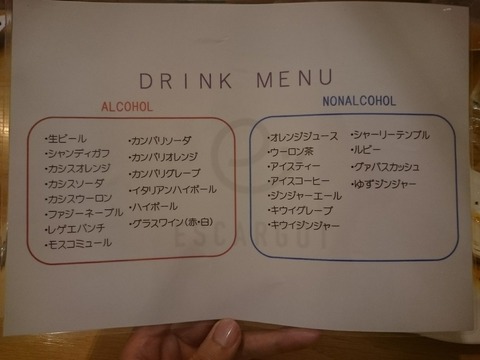 DRINK MENU
ALCOHOL
・生ビール
・シャンディガフ
・カシスオレンジ
・カシスソーダ
・カシスウーロン
・ファジーネーブル
・レゲエパンチ
・モスコミュール
・カンパリソーダ
・カンパリオレンジ
・カンパリグレープ
・イタリアンハイボール
・ハイボール
・グラスワイン(赤・白)
NONALCOHOL
・オレンジジュース
・ウーロン茶
・アイスティー
・アイスコーヒー
・ジンジャーエール
・キウイグレープ
・キウイジンジャー
・シャーリーテンプル
・ルビー
・グァバスカッシュ
・ゆずジンジャー
ESCARGOT